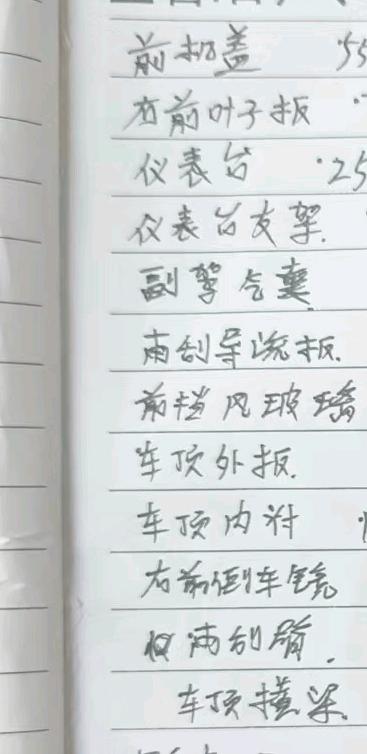 前机盖 55
右前叶子板
仪表台 25
仪表台支架
副驾气囊
雨刮导流板
前挡风玻璃
车顶外板
车顶内衬
右前倒车镜
雨刮臂
车顶横梁